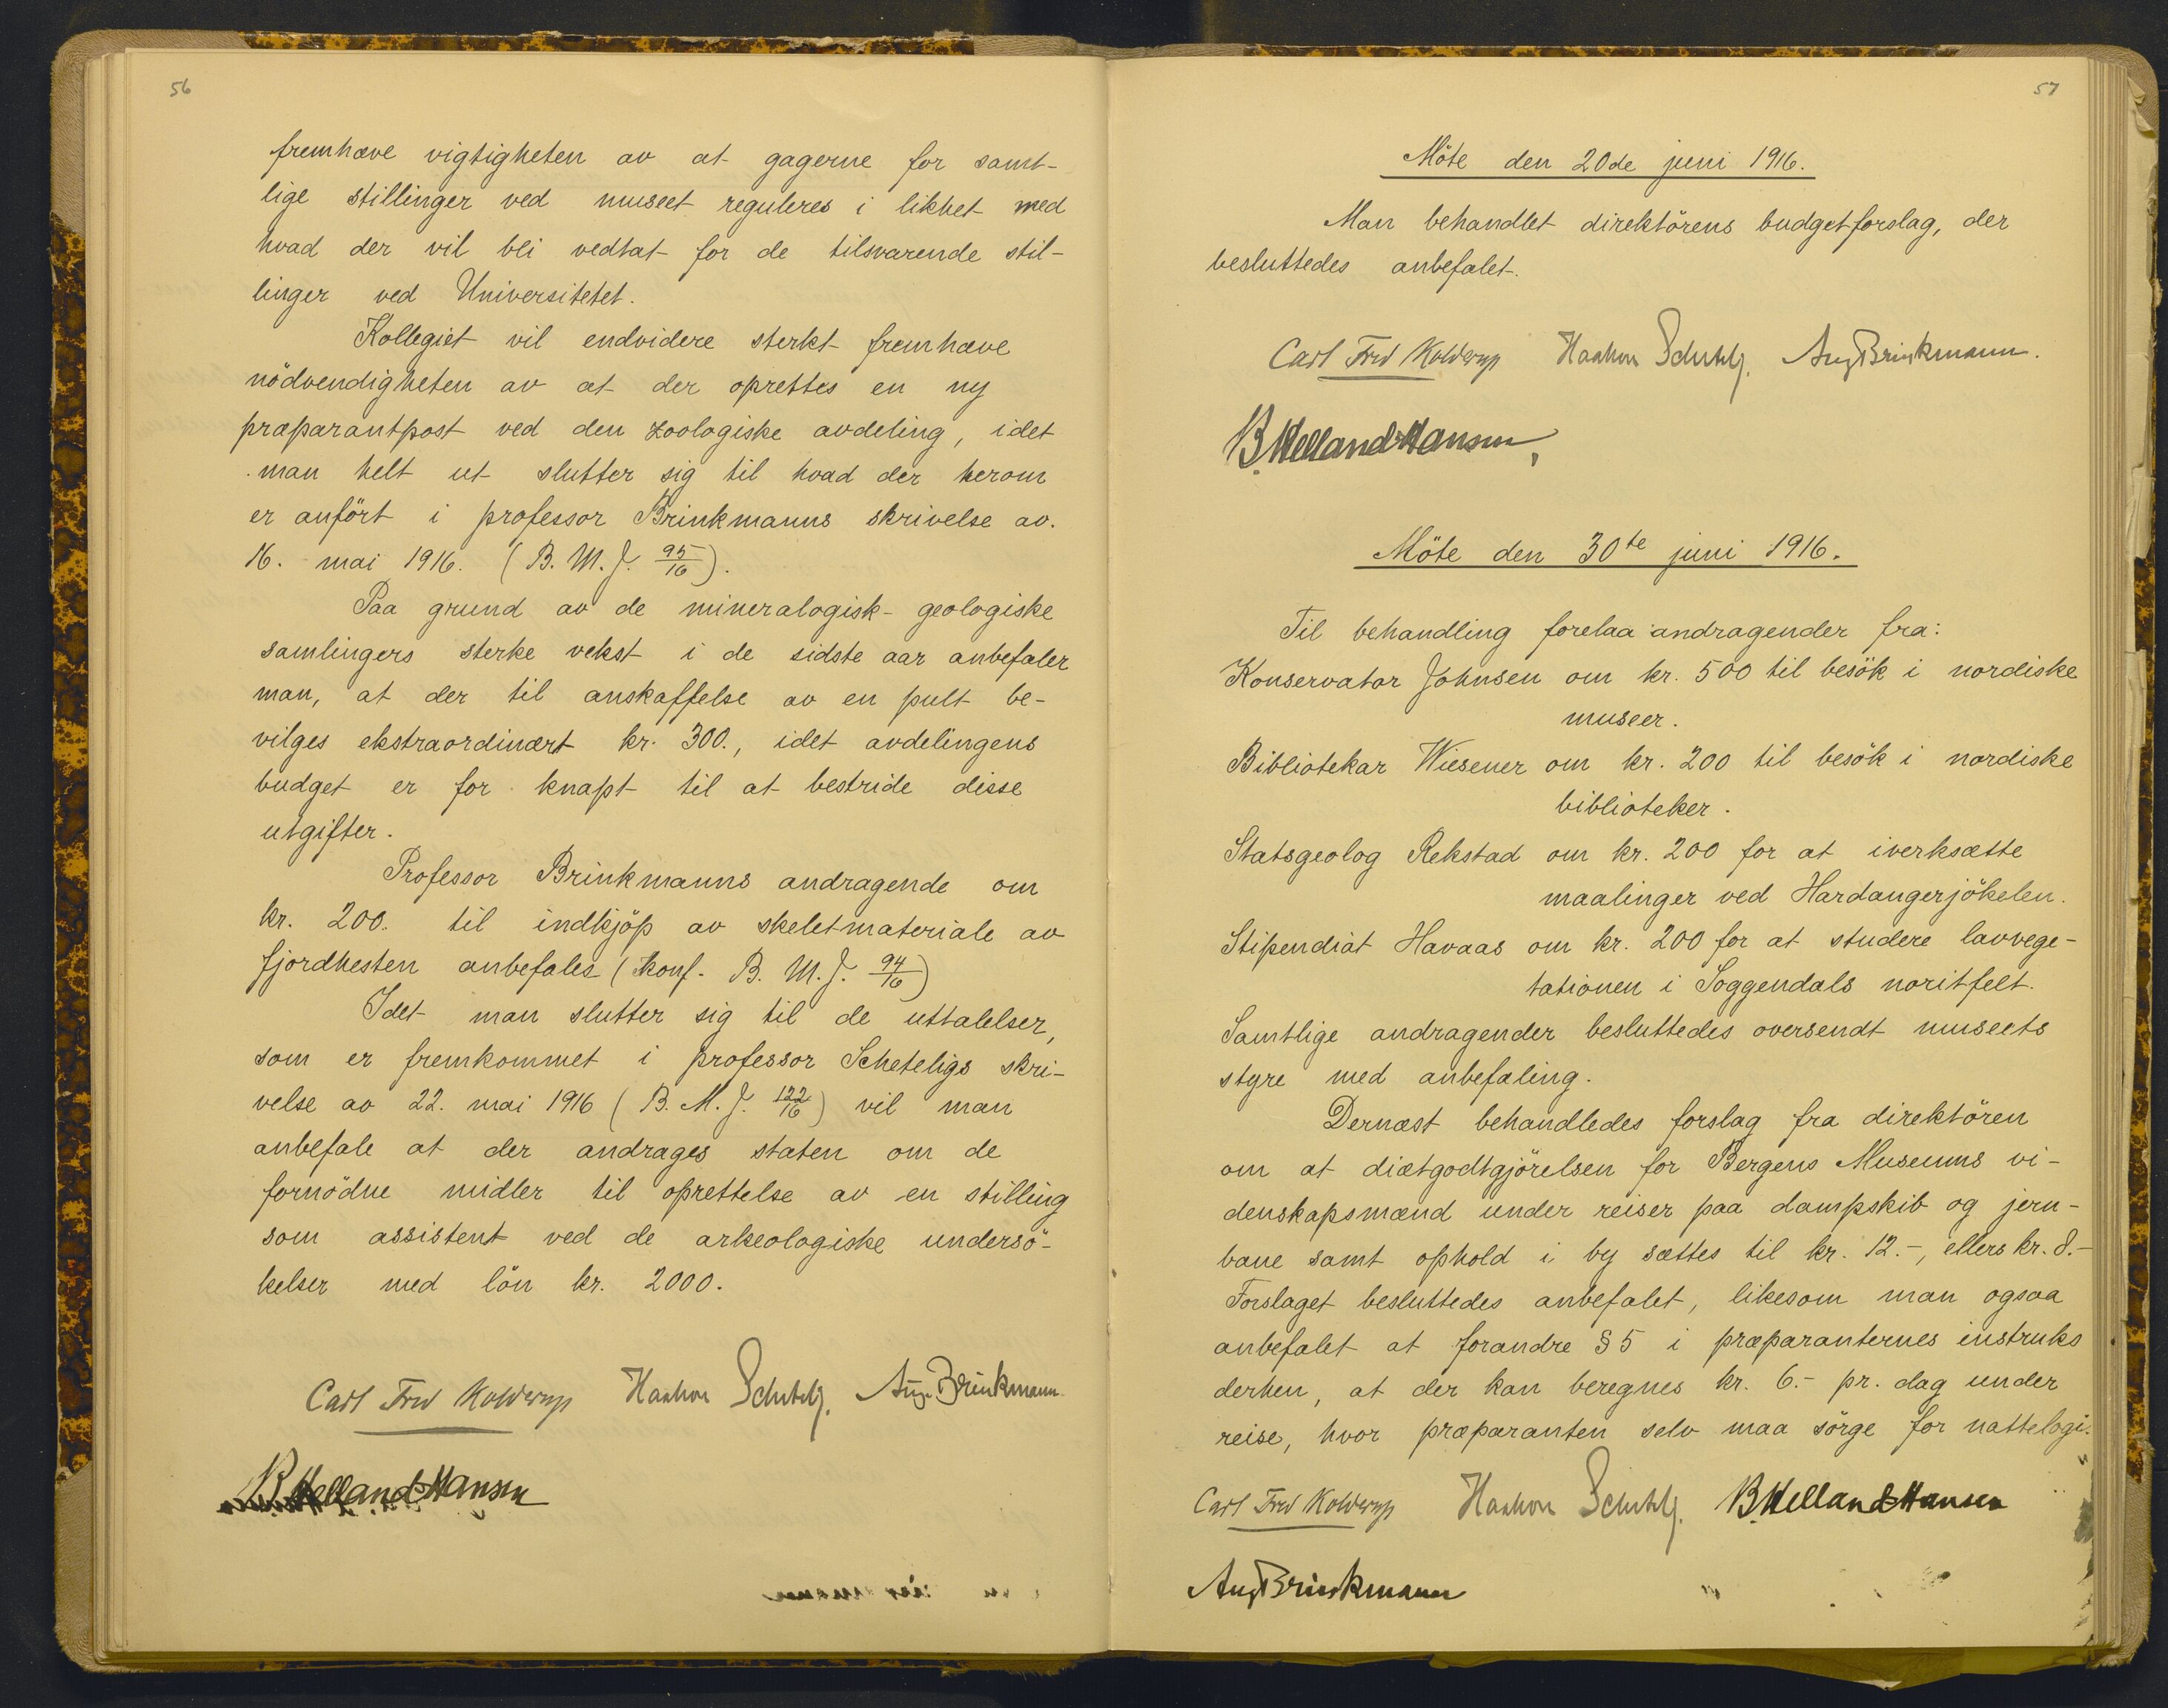 56
fremhæve vigtigheten av at gagerne for samt-
lige stillinger ved museet reguleres i likhet med
hvad der vil bli vedtat for de tilsvarende stil-
linger ved Universitetet.
Kollegiet vil endvidere sterkt fremhæve
nödvendigheten av at der oprettes en ny
præparantpost ved den zoologiske avdeling, idet
man helt ut slutter sig til hvad der herom
er anfört i professor Brinkmanns skrivelse av.
16. mai 1916. (B. M. J. 95/16).
Paa grund av de mineralogisk-geologiske
samlingers sterke vekst i de sidste aar anbefaler
man, at der til anskaffelse av en pult be-
vilges ekstraordinært kr. 300., idet avdelingens
budget er for knapt til at bestride disse
utgifter.
Professor Brinkmanns andragende om
kr. 200. til indkjöp av skeletmateriale av
fjordhesten anbefales (konf. B. M. J. 94/16)
Idet man slutter sig til de uttalelser,
som er fremkommet i professor Scheteligs skri-
velse av 22. mai 1916 (B. M. J. 122/16) vil man
anbefale at der andrages staten om de
fornödne midler til oprettelse av en stilling
som assistent ved de arkeologiske undersö-
kelser med lön kr. 2000.
Carl Fred Kolderup Haakon Schetelig. Aug. Brinkmann.
B. Helland-Hansen
57
Möte den 20de juni 1916.
Man behandlet direktörens budgetforslag, der
besluttedes anbefalet.
Carl Fred Kolderup Haakon Schetelig. Aug Brinkmann.
B. Helland-Hansen,
Möte den 30te juni 1916.
Til behandling forelaa andragender fra:
Konservator Johnsen om kr. 500 til besök i nordiske
museer.
Bibliotekar Wiesener om kr. 200 til besök i nordiske
biblioteker.
Statsgeolog Rekstad om kr. 200 for at iverksætte
maalinger ved Hardangerjökelen.
Stipendiat Havaas om kr. 200 for at studere lavvege-
tationen i Soggendals noritfelt.
Samtlige andragender besluttedes oversendt museets
styre med anbefaling.
Dernæst behandledes forslag fra direktören
om at diætgodtgjörelsen for Bergens Museums vi-
denskapsmænd under reiser paa dampskib og jern-
bane samt ophold i by sættes til kr. 12.-, ellers kr. 8.-
Forslaget besluttedes anbefalet, likesom man ogsaa
anbefalet at forandre § 5 i præparanternes instruks
derhen, at der kan beregnes kr. 6.- pr. dag under
reise, hvor præparanten selv maa sörge for nattelogi.
Carl Fred Kolderup Haakon Schetelig. B. Helland-Hansen
Aug Brinkmann